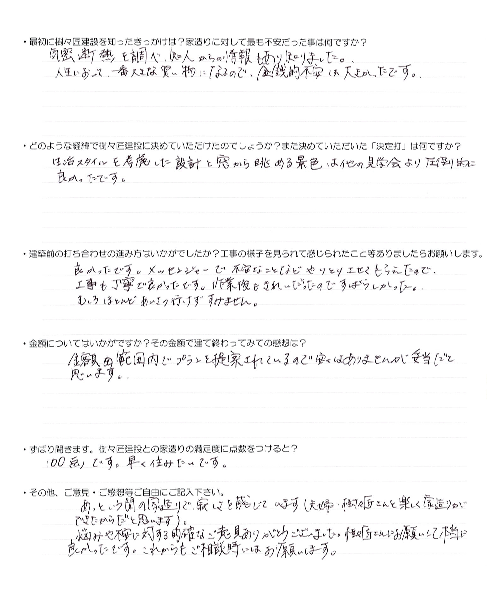 ・最初に樹々匠建設を知ったきっかけは？家造りに対して最も不安だった事は何ですか？
気密断熱を調べ、知人からの情報もあり知りました。
人生において、一番大きな買い物になるので、金銭的不安は大きかったです。
・どのような経緯で樹々匠建設に決めていただけたのでしょうか？また決めていただいた「決定打」は何ですか？
生活スタイルを考慮した設計と窓から眺める景色は他の見学会より圧倒的に
良かったです。
・建築前の打ち合わせの進み方はいかがでしたか？工事の様子を見られて感じられたこと等ありましたらお願いします。
良かったです。メッセンジャーで不安なことなどやりとりさせてもらえたので、
工事も丁寧で良かったです。作業後もきれいだったのですばらしかった。
むしろほとんどあいさつ行けずすみません。
・金額についてはいかがですか？その金額で建て終わってみての感想は？
金額の範囲内でプランを提案されているので安くはありませんが妥当だと
思います。
・ずばり聞きます。樹々匠建設との家造りの満足度に点数をつけると？
100点です。早く住みたいです。
・その他、ご意見・ご感想等ご自由にご記入下さい。
あっという間の家造りで、寂しさを感じています（夫婦・樹々匠さんと楽しく家造りが
できたからだと思います）。
悩みや相談に対する的確なご意見ありがとうございました。樹々匠さんにお願いして本当に
良かったです。これからもご相談時にはお願いします。